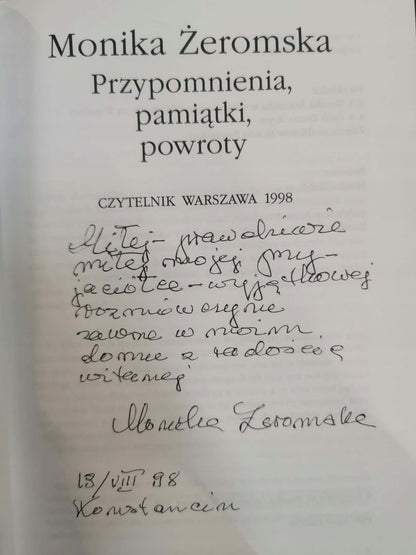 Monika Żeromska
Przypomnienia,
pamiątki,
powroty
CZYTELNIK WARSZAWA 1998
Miłej – prawdziwie
miłej mojej przy-
jaciółce – wyjątkowej
rozmówczyni
zawsze w moim
domu z radością
witanej
Monika Żeromska
13/VIII 98
Konstancin